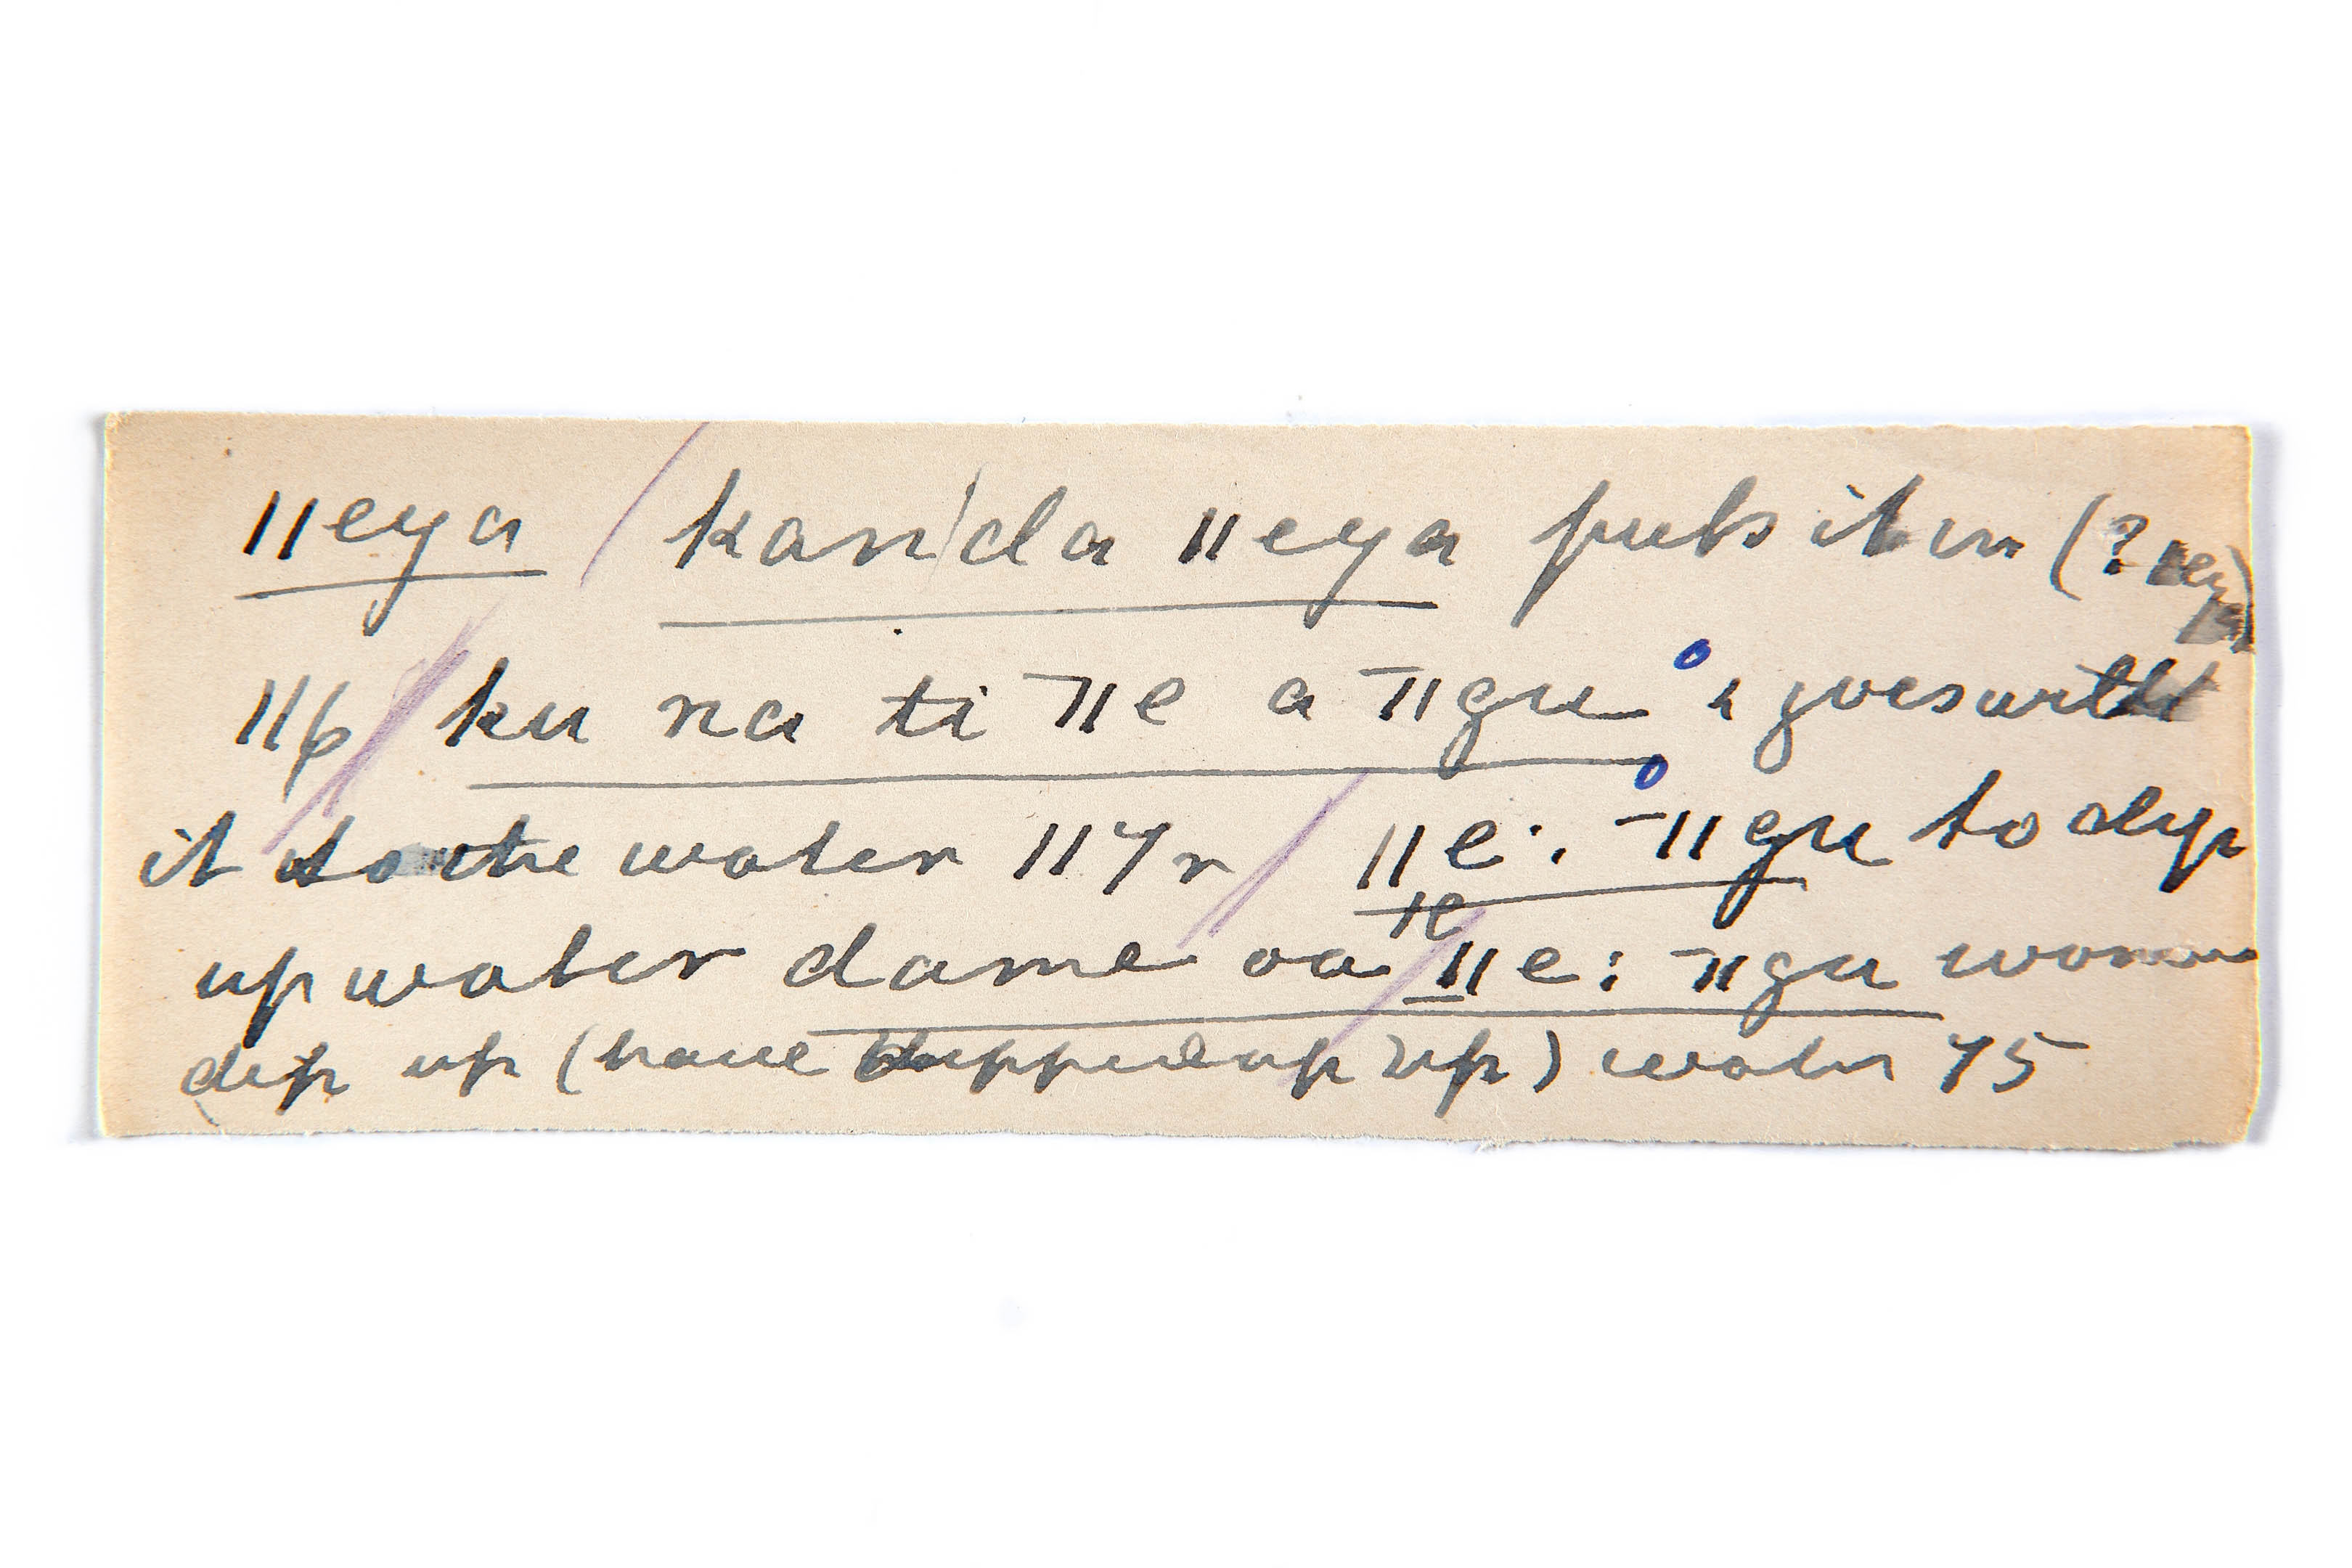 ǁeya / kan/da ǁeya puts it in (?
116 / ku na ti ¯ǁe a ¯ǁgu & goes with
it to the water 117r / ǁe: ¯ǁgu to dip
up water dame oa ǁe: ¯ǁgu woman
dip up (have dipped up) water 75